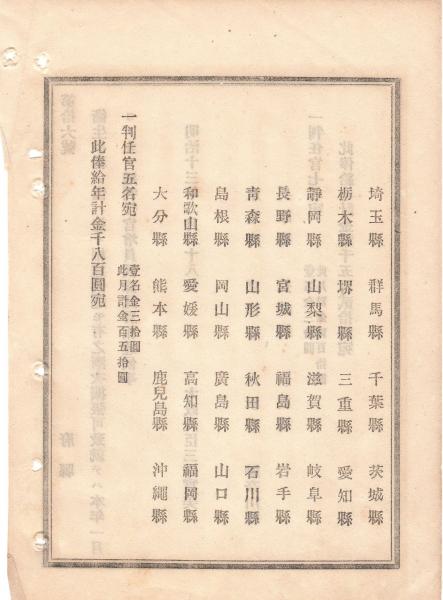 埼玉縣 群馬縣 千葉縣 茨城縣
栃木縣 堺縣 三重縣 愛知縣
靜岡縣 山梨縣 滋賀縣 岐阜縣
長野縣 宮城縣 福島縣 岩手縣
靑森縣 山形縣 秋田縣 石川縣
島根縣 岡山縣 廣島縣 山口縣
和歌山縣 愛媛縣 高知縣 福岡縣
大分縣 熊本縣 鹿兒島縣 沖繩縣
一判任官五名宛 壹名金三拾圓
此月計金百五拾圓
此俸給年計金千八百圓宛